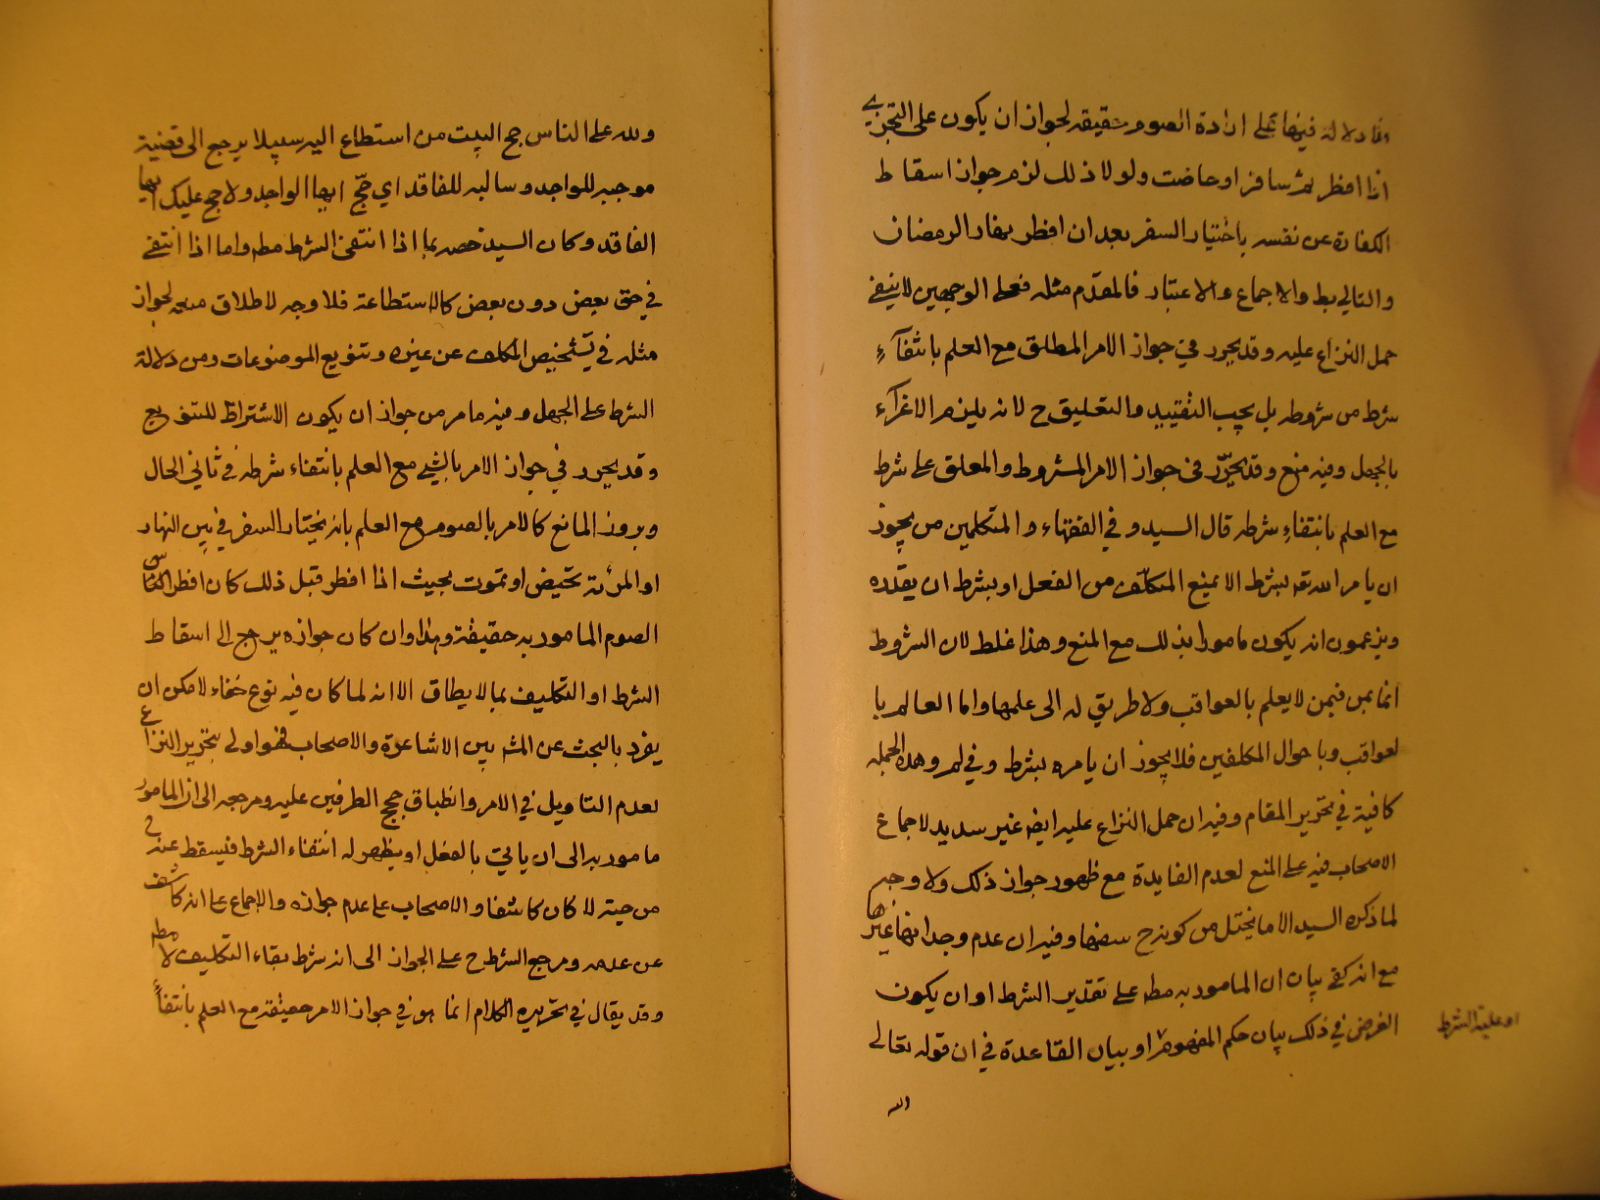 دلالة فيها على ارادة الصوم حقيقة لجواز ان يكون على التجري
اذا افطر ثم سافر او حاضت ولولا ذلك لزم جواز اسقاط
الكفارة عن نفسه باختيار السفر بعد ان افطر بنهار الرمضان
والتالي بط والاجماع والاعتبار فالمقدم مثله فعلى الوجهين لا ينبغي
حمل النزاع عليه وقد يحرر في جواز الامر المطلق مع العلم بانتفاء
شرط من شروطه بل يجب التقييد والتعليق ح لانه يلزم الاغراء
بالجهل وفيه منع وقد يحرّر في جواز الامر المشروط والمعلق على شرط
مع العلم بانتفاء شرطه قال السيد وفي الفقهاء والمتكلمين من يجوز
ان يامر الله تع بشرط الا يمنع المكلّف من الفعل او بشرط ان يقدره
ويزعمون انه يكون مامورا بذلك مع المنع وهذا غلط لان الشروط
انما يحسن فيمن لا يعلم بالعواقب ولا طريق له الى علمها واما العالم با
لعواقب وباحوال المكلفين فلا يجوز ان يامره بشرط وهذه الجملة
كافية في تحرير المقام وفيه ان حمل النزاع عليه ايض غير سديد لاجماع
الاصحاب فيه على المنع لعدم الفايدة مع ظهور جواز ذلك ولا وجه
لما ذكره السيد الا ما يختل من كونه ح سفها وفيه ان عدم وجداننا غيرها
مع انه كفى بيان ان المامور به مط على تقدير الشرط او ان يكون
الغرض في ذلك بيان حكم المفهوم او بيان القاعدة في ان قوله تعالى
او علية الشرط
ولله على الناس حج البيت من استطاع اليه سبيلا يرجع الى قضية
موجبة للواجد وسالبة للفاقد اي حجّ ايها الواجد ولا حج عليك ايها
الفاقد وكان السيد خصه بما اذا انتفى الشرط مط واما اذا انتفى
في حق بعض دون بعض كالاستطاعة فلا وجه لاطلاق منعه لجواز
مثله في تشخيص المكلف عن غيره وتنويع الموضوعات ومن دلالة
الشرط على الجهل وفيه ما مر من جواز ان يكون الاشتراط للتنويع
وقد يحرر في جواز الامر بالشيء مع العلم بانتفاء شرطه في ثاني الحال
وبروز المانع كالامر بالصوم مع العلم بانه يختار السفر في بين النهار
او المرئة تحيض او تموت بحيث اذا افطر قبل ذلك كان افطر
الصوم المامور به حقيقة وهذا وان كان جوازه يرجع الى اسقاط
الشرط او التكليف بما لا يطاق الا انه لما كان فيه نوع خفاء لامكن ان
يفرد بالبحث عن المش بين الاشاعرة والاصحاب فهو اولى بتحرير النزاع
لعدم التاويل في الامر وانطباق حجج الطرفين عليه ومرجعه الى ان المامور
مامور به الى ان ياتي بالفعل او يظهر له انتفاء الشرط فيسقط عنه
من حينه لا كان كاشفا والاصحاب على عدم جوازه والاجماع على انه كاشف
عن عدمه ومرجع الشرط ح على الجواز الى انه شرط بقاء التكليف لا مط
وقد يقال في تحريره الكلام انما هو في جواز الامر حقيقة مع العلم بانتفاء